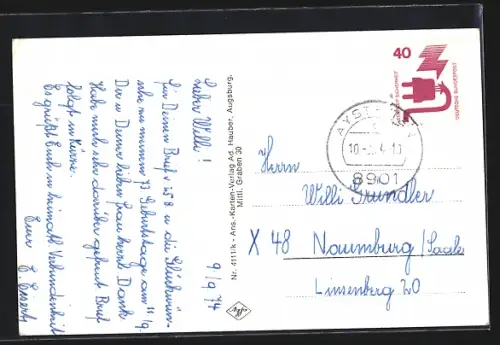 9/9.74
Lieber Willi!
Für Deinen Brief v. 25.8. u. die Glückwün-
sche zu meinem 73 Geburtstage am 11/9.
Dir u. Deiner lieben Frau herzl. Dank.
Habe mich sehr darüber gefreut. Brief
folgt in Kürze.
Es grüßt Euch in heimatl. Verbundenheit
Euer
Nr. 4111/k - Ans.-Karten-Verlag Ad. Hauber, Augsburg,
Mittl. Graben 30
40
DEUTSCHE BUNDESPOST
8901
Herrn
Willi Gründler
X 48 Naumburg/Saale
Linsenberg 20